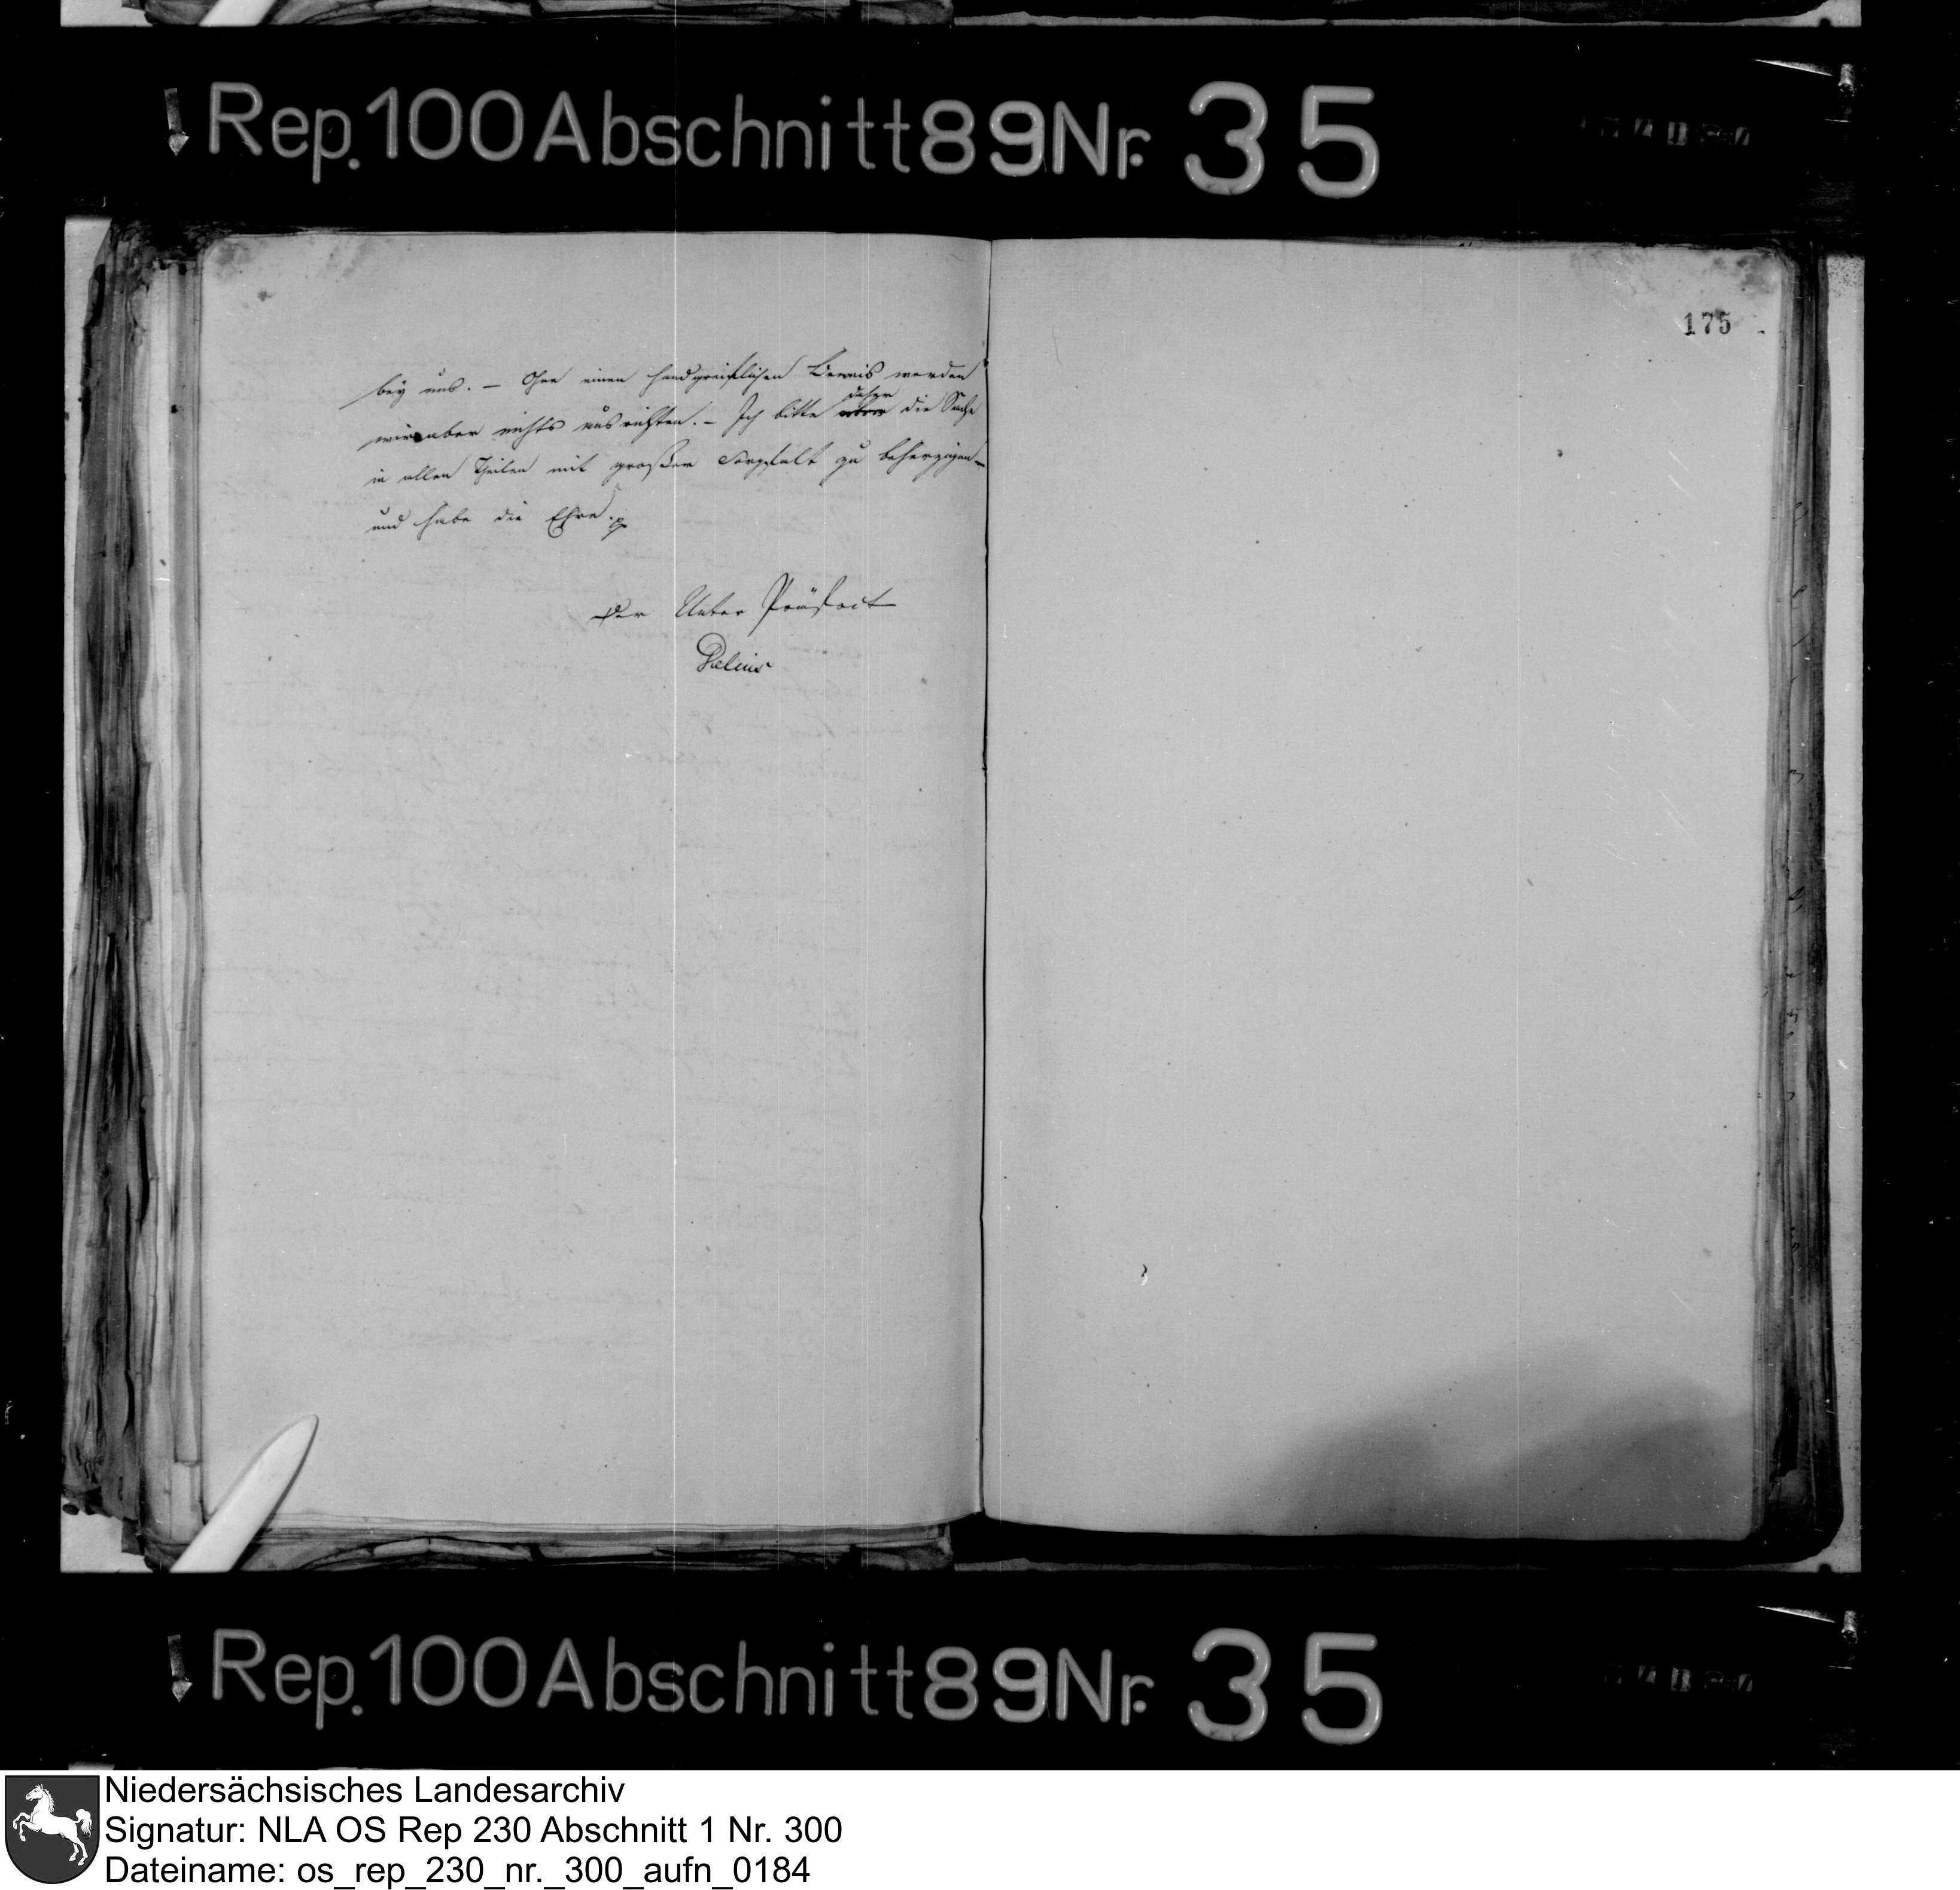 Rep. 100 Abschnitt 89 Nr. 35
175
bey uns. – Ohne einen handgreiflichen Beweis werden
wir aber nichts ausrichten. – Ich bitte daher die Sache
in allen Theilen mit großer Sorgfalt zu beherzigen –
und habe die Ehre.
Der Unter Präfect
Delius
Rep. 100 Abschnitt 89 Nr. 35
Niedersächsisches Landesarchiv
Signatur: NLA OS Rep 230 Abschnitt 1 Nr. 300
Dateiname: os_rep_230_nr._300_aufn_0184